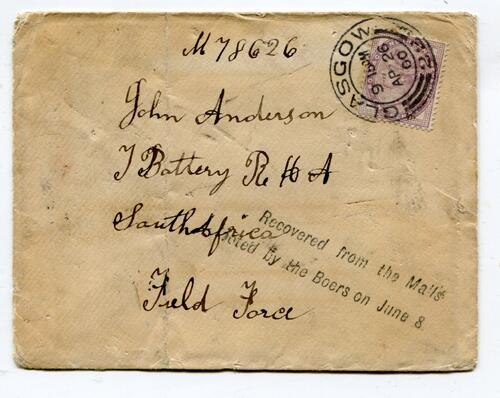 M 78626
GLASGOW
9 15 PM
AP 26
00
John Anderson
J Battery R H A
South Africa
Field Force
Recovered from the Mails
looted by the Boers on June 8